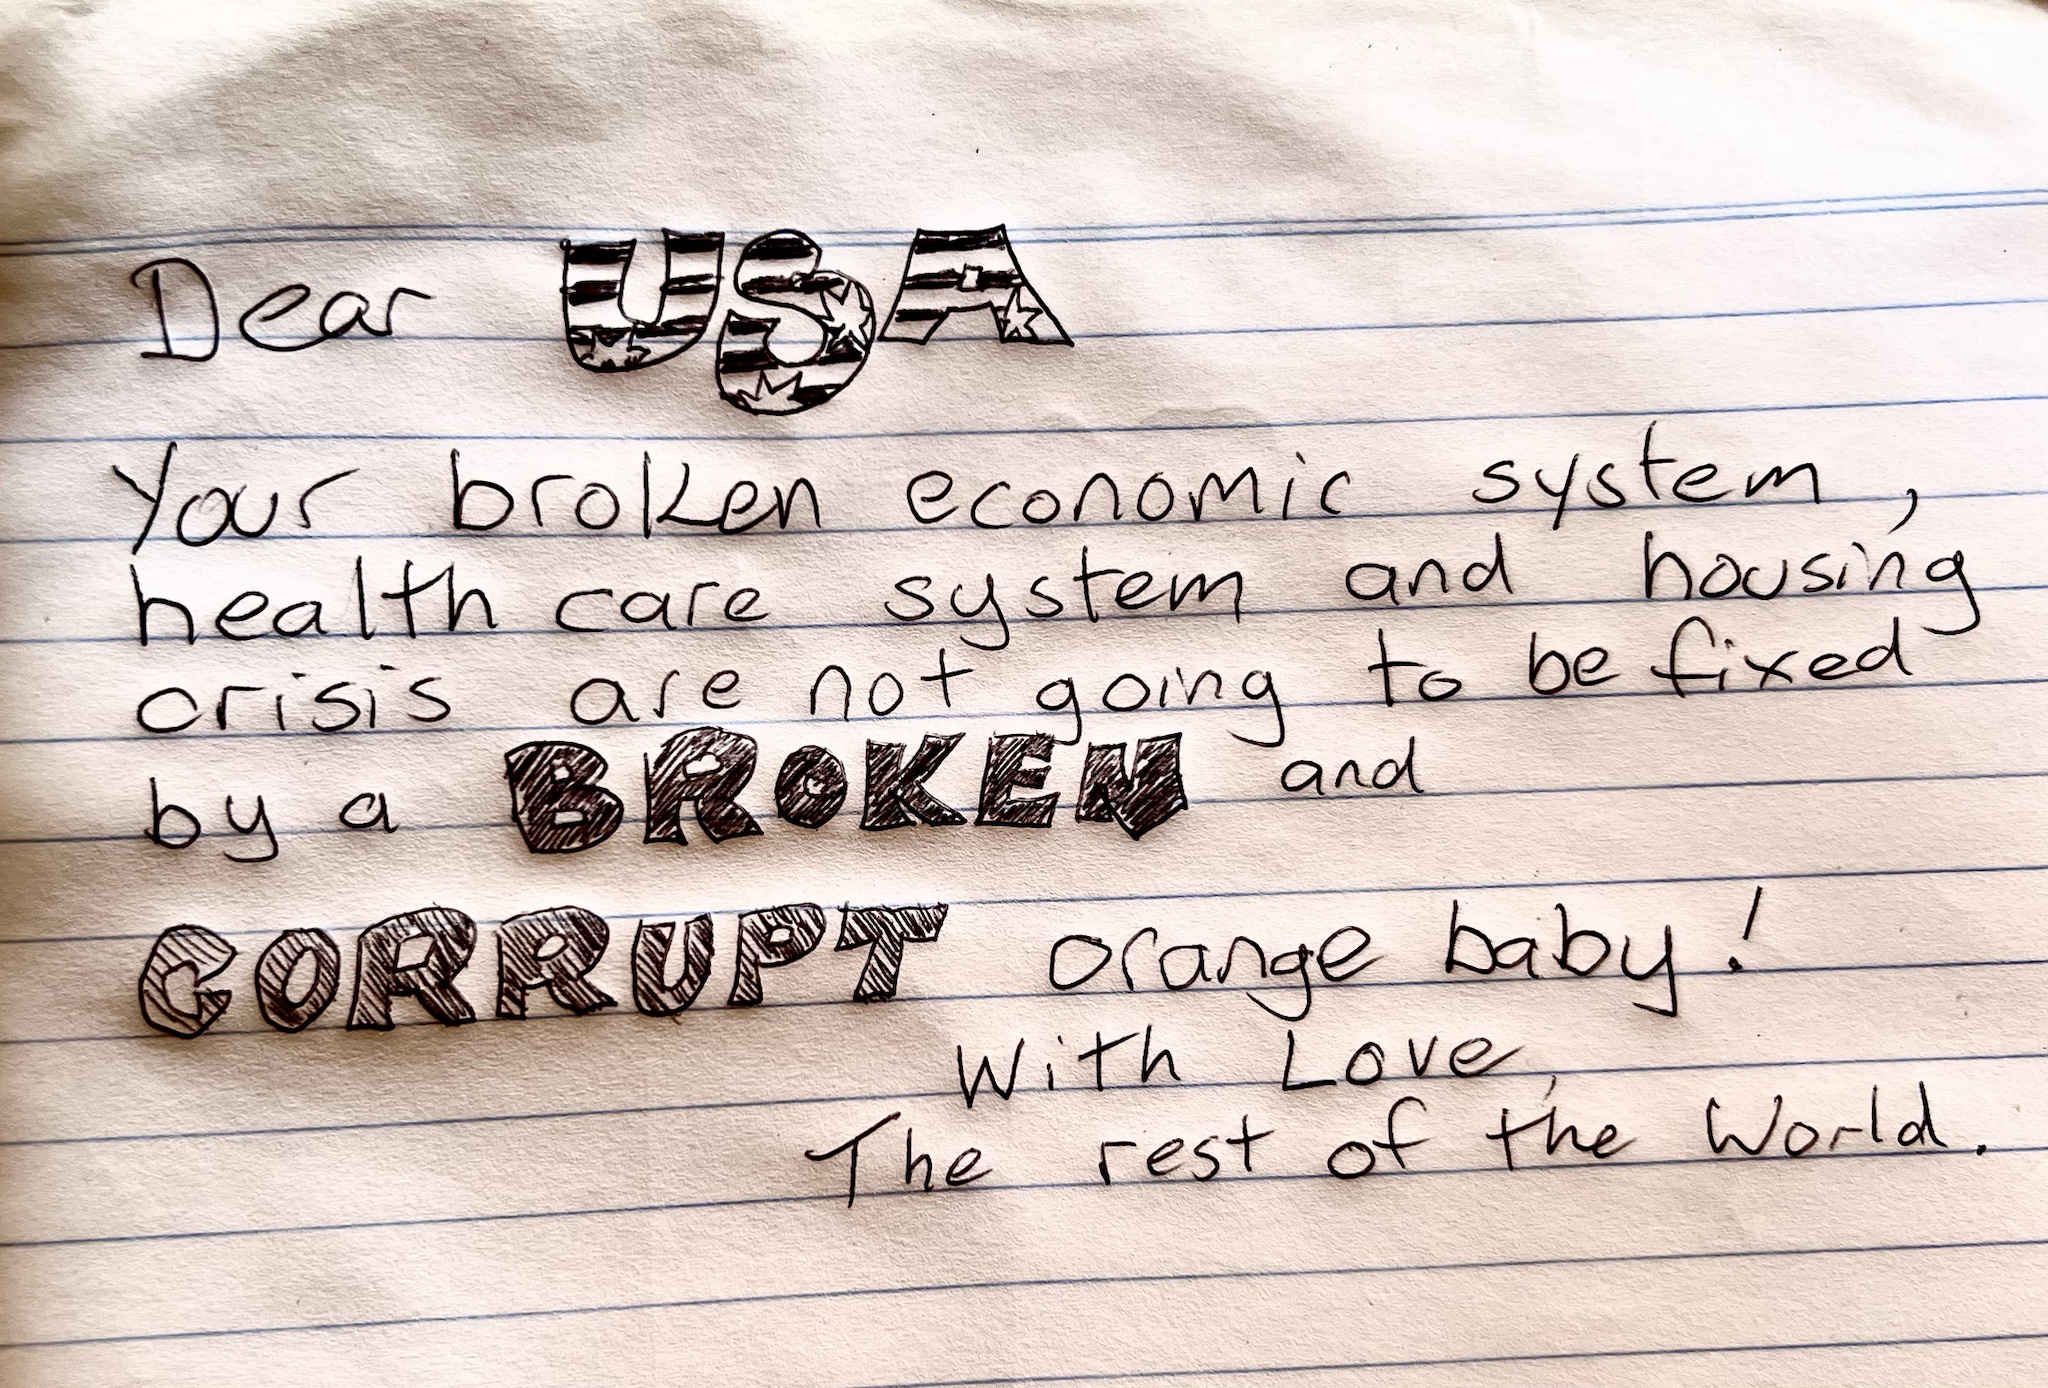 Dear USA
Your broken economic system,
health care system and housing
crisis are not going to be fixed
by a BROKEN and
CORRUPT orange baby!
With Love,
The rest of the World.